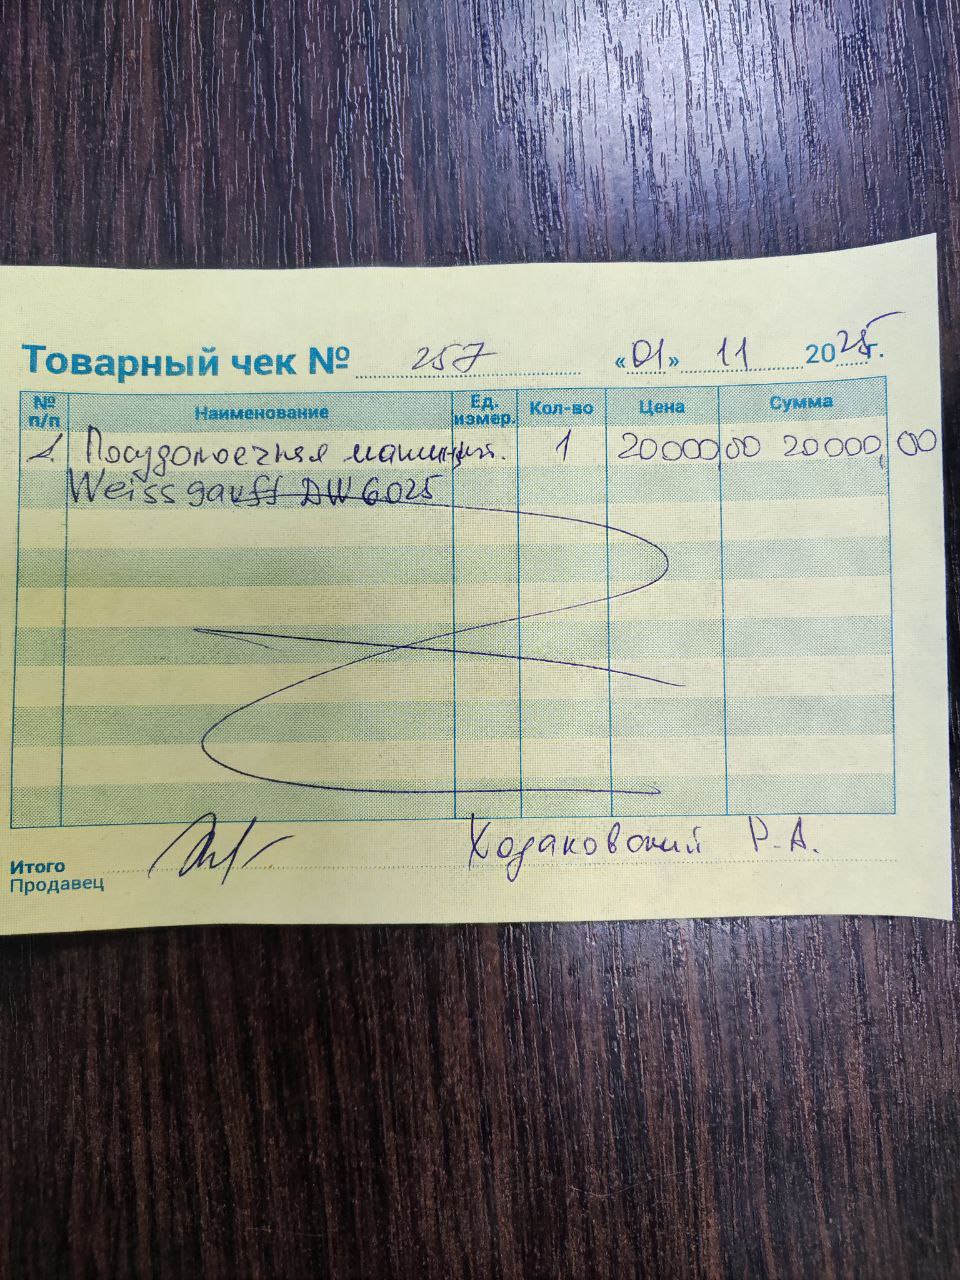 Товарный чек № 257 «01» 11 2025г.
№ п/п Наименование Ед. измер. Кол-во Цена Сумма
1. Посудомоечная машина. 1 20000,00 20000,00
Weissgauff DW 6025
Итого
Продавец Ходаковский Р.А.